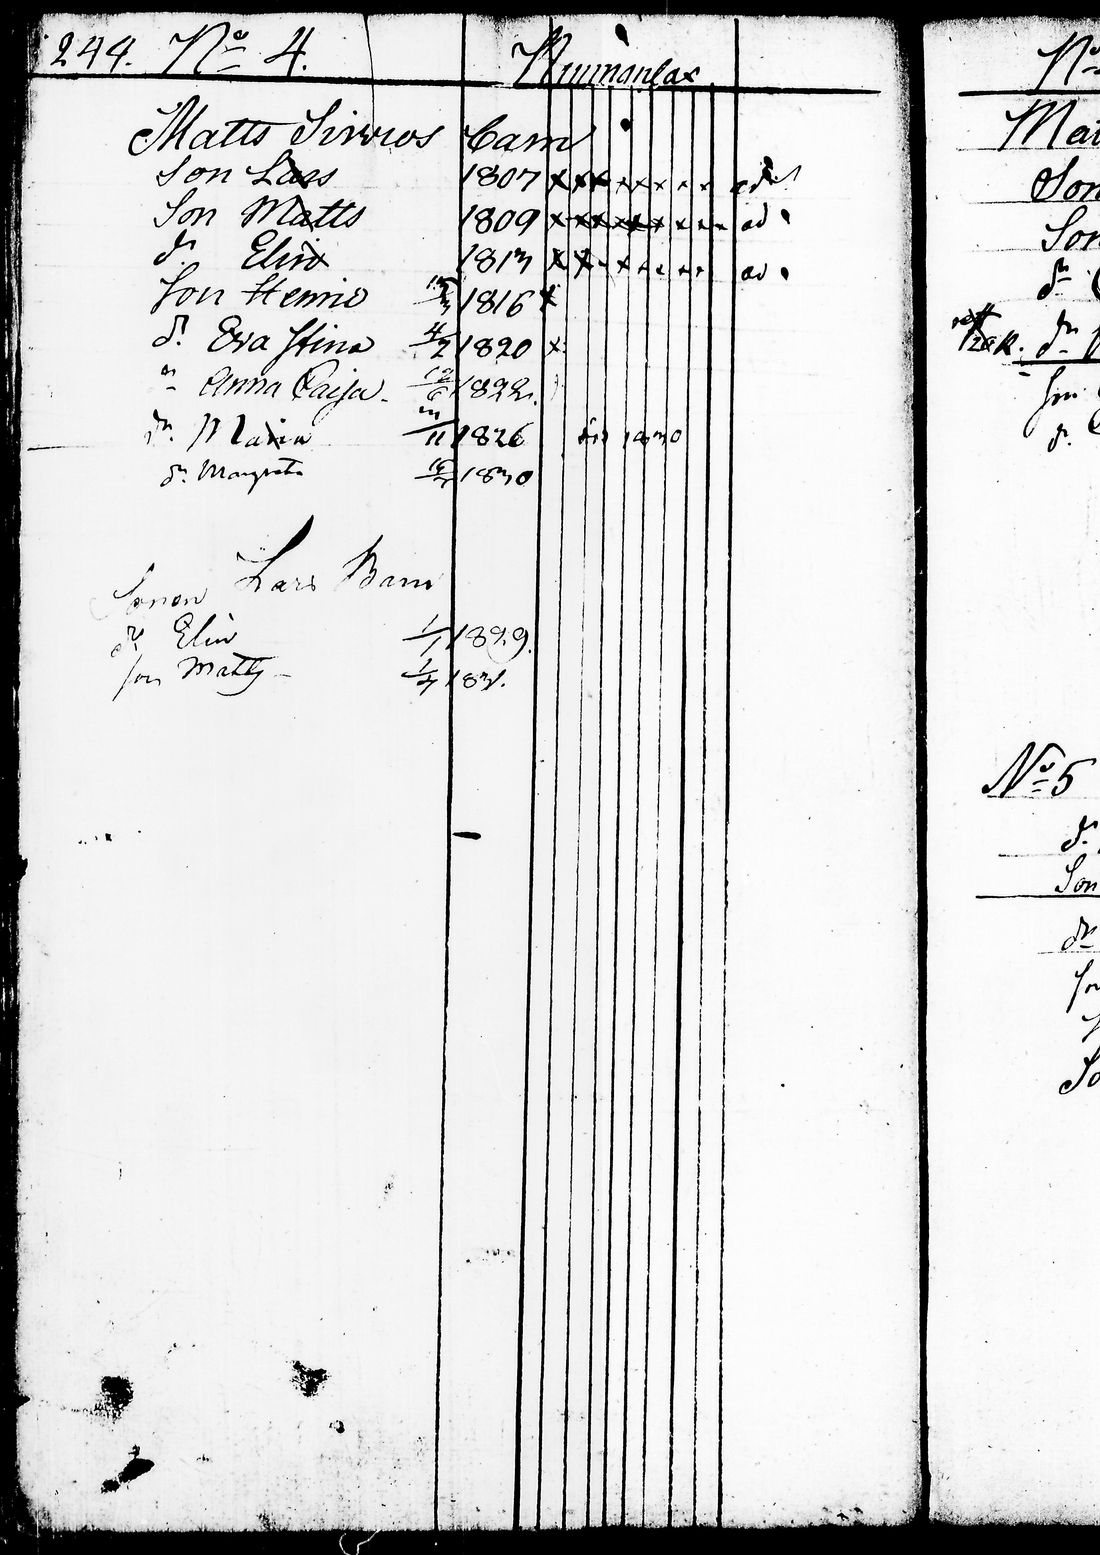 244. No 4. Kuumanlax
Matts Sirvios Barn
Son Lars 1807 x x x x x x x x ad
Son Matts 1809 x x x x x x x x x ad
dr. Elin 1813 x x x x x x x ad
Son Henric 1816 x
dr. Eva Stina 4/2 1820 x
Anna Caija 1822.
dr. Maria /11 1826 1830
dr. Margreta 1830
Sonen Lars Barn
dr Elin 1/1 1829.
son Matts 1/7 1831.
No
Mat
Son
Son
dr
dr
Son
dr.
No 5
dr.
Son
dr
So